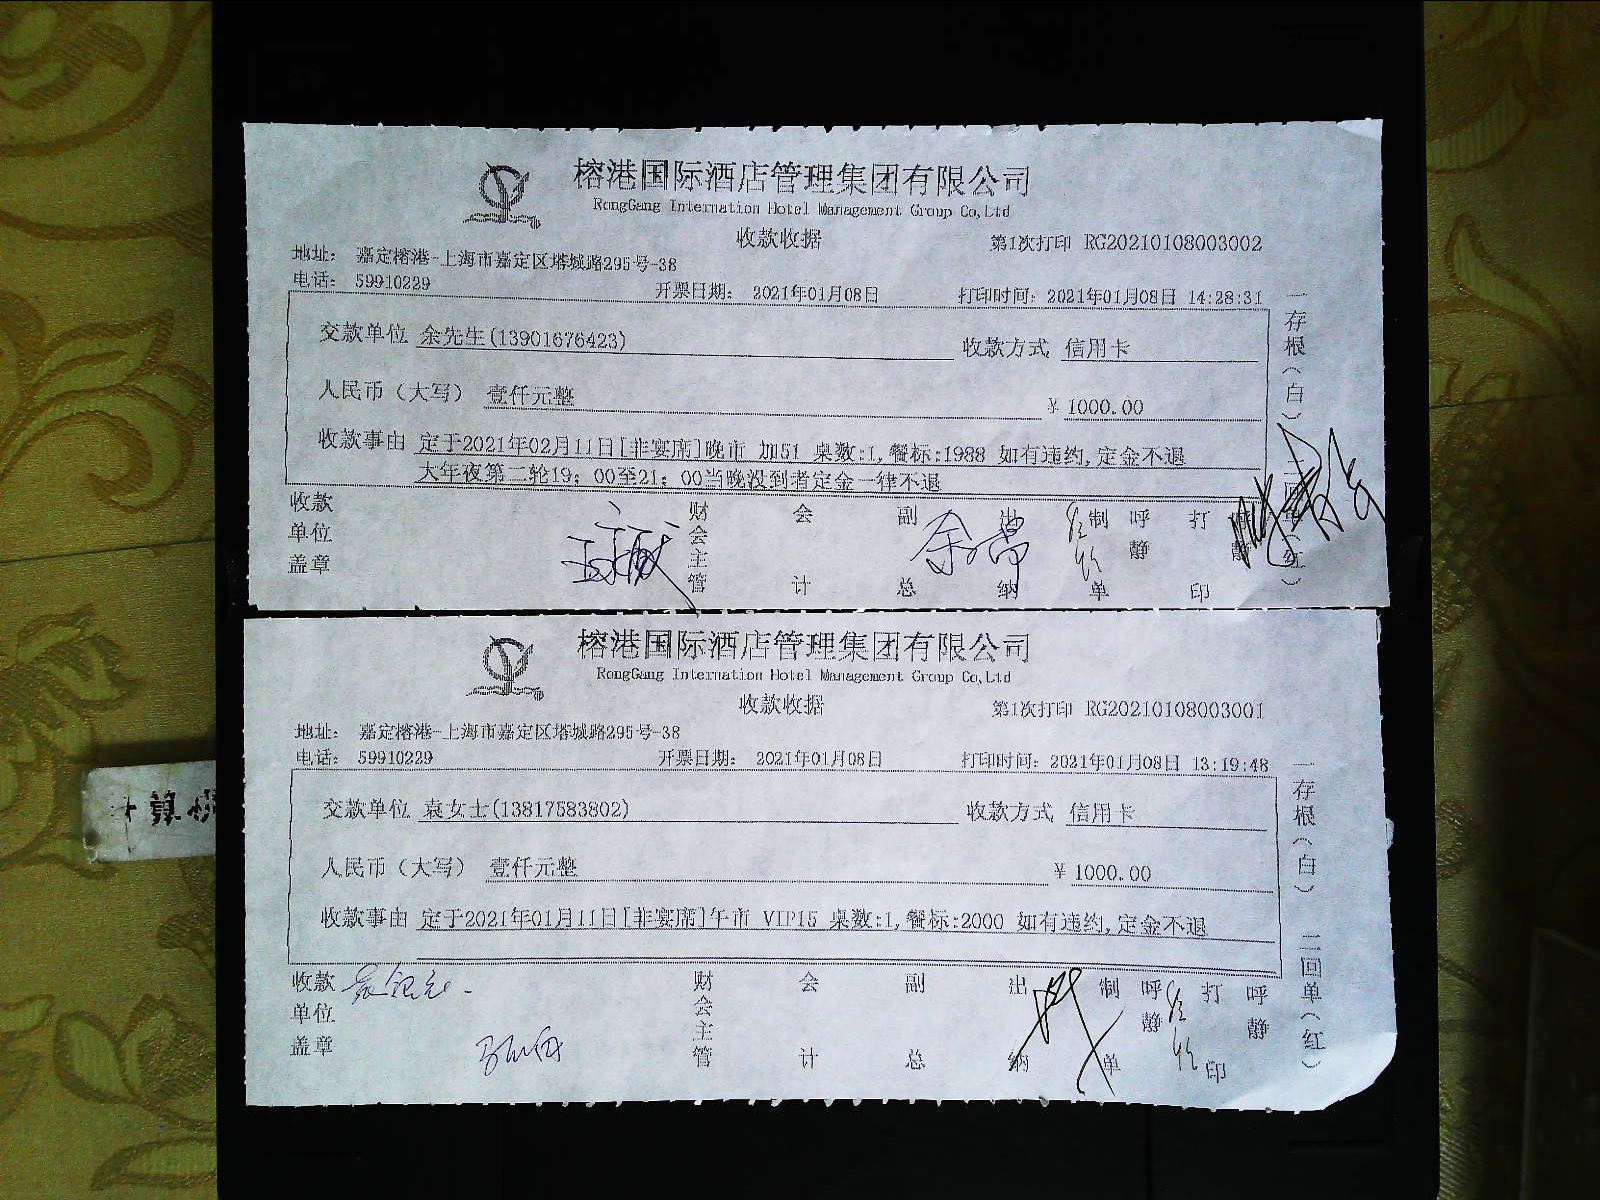 榕港国际酒店管理集团有限公司
RongGang Internation Hotel Management Group Co,Ltd
收款收据
第1次打印 RG20210108003002
地址： 嘉定榕港-上海市嘉定区塔城路295号-38
电话： 59910229
开票日期： 2021年01月08日
打印时间：2021年01月08日 14:28:31
交款单位 余先生(13901676423)
收款方式 信用卡
人民币（大写） 壹仟元整
¥ 1000.00
收款事由 定于2021年02月11日[非宴席]晚市 加51 桌数:1,餐标:1988 如有违约,定金不退
大年夜第二轮19；00至21；00当晚没到者定金一律不退
收款单位盖章
财会主管
会计
副总
出纳
制单
呼静
打印
一存根（白）
二回单（红）
榕港国际酒店管理集团有限公司
RongGang Internation Hotel Management Group Co,Ltd
收款收据
第1次打印 RG20210108003001
地址： 嘉定榕港-上海市嘉定区塔城路295号-38
电话： 59910229
开票日期： 2021年01月08日
打印时间：2021年01月08日 13:19:48
交款单位 袁女士(13817583802)
收款方式 信用卡
人民币（大写） 壹仟元整
¥ 1000.00
收款事由 定于2021年01月11日[非宴席]午市 VIP15 桌数:1,餐标:2000 如有违约,定金不退
收款单位盖章
财会主管
会计
副总
出纳
制单
呼静
打印
呼静
一存根（白）
二回单（红）